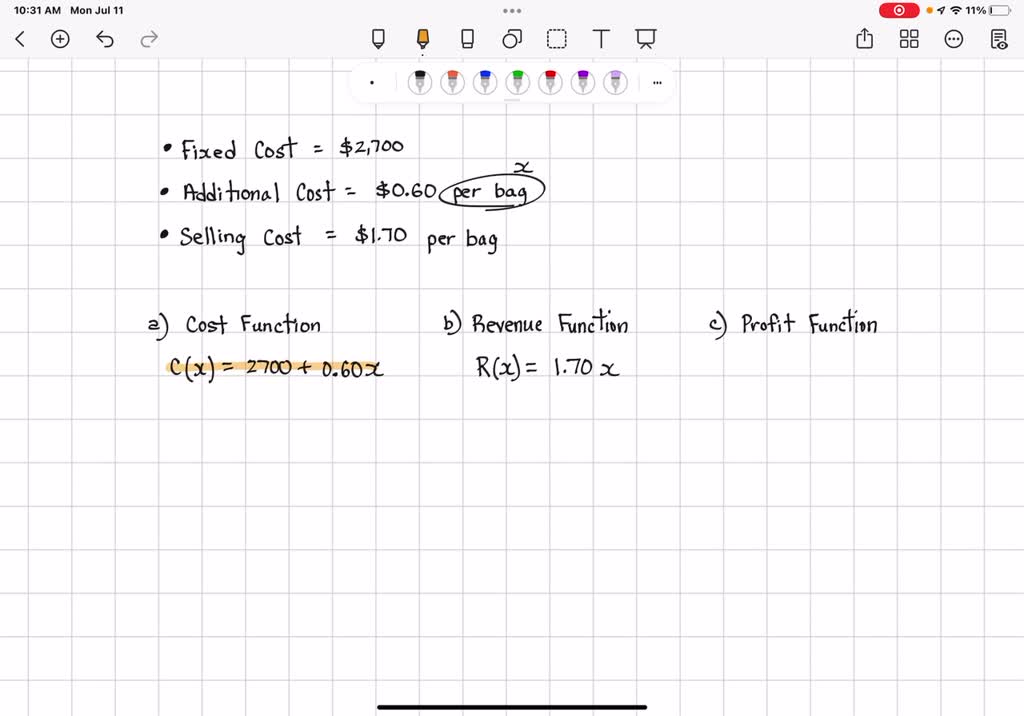 10:31 AM Mon Jul 11
11%
• Fixed Cost = $2,700
x
• Additional Cost = $0.60 per bag
• Selling Cost = $1.70 per bag
a) Cost Function b) Revenue Function c) Profit Function
C(x) = 2700 + 0.60x R(x) = 1.70 x